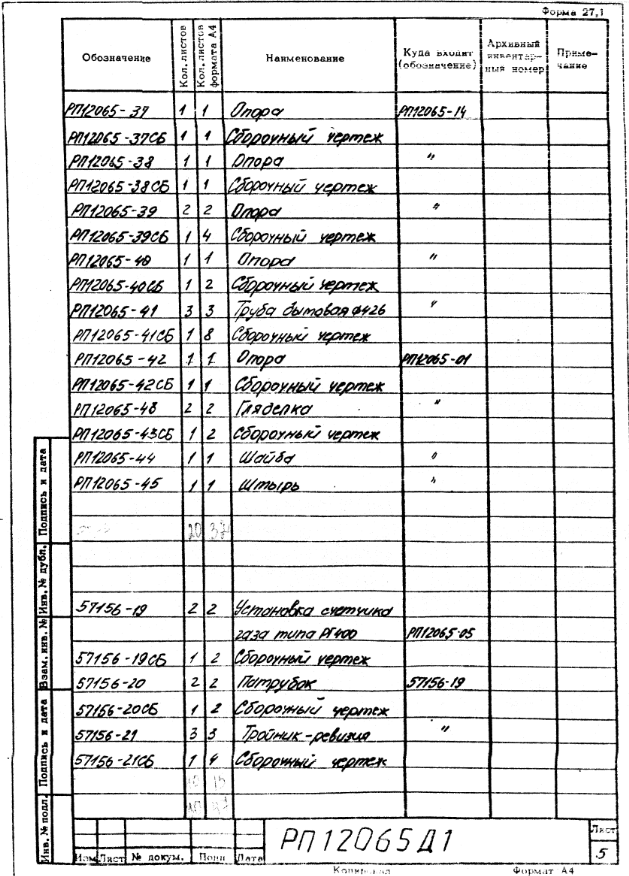 Форма 27,1
Обозначение Кол. листов Кол. листов формата А4 Наименование Куда входит (обозначение) Архивный инвентарный номер Примечание
РП12065-37 1 1 Опора РП12065-14
РП12065-37СБ 1 1 Сборочный чертеж
РП12065-38 1 1 Опора "
РП12065-38СБ 1 1 Сборочный чертеж
РП12065-39 2 2 Опора "
РП12065-39СБ 1 4 Сборочный чертеж
РП12065-40 1 1 Опора "
РП12065-40СБ 1 2 Сборочный чертеж
РП12065-41 3 3 Труба бытовая ф426 "
РП12065-41СБ 1 8 Сборочный чертеж
РП12065-42 1 1 Опора РП12065-01
РП12065-42СБ 1 1 Сборочный чертеж
РП12065-43 2 2 Гляделка "
РП12065-43СБ 1 2 Сборочный чертеж
РП12065-44 1 1 Шайба "
РП12065-45 1 1 Штырь "
20 37
57156-19 2 2 Установка счетчика
газа типа РГ400 РП12065-05
57156-19СБ 1 2 Сборочный чертеж
57156-20 2 2 Патрубок 57156-19
57156-20СБ 1 2 Сборочный чертеж
57156-21 3 3 Тройник-ревизия "
57156-21СБ 1 4 Сборочный чертеж
Инв. № подл. Подпись и дата Взам. инв. № Инв. № дубл. Подпись и дата
РП12065Д1
Лист
5
Изм Лист № докум. Подп Дата
Копировал Формат А4